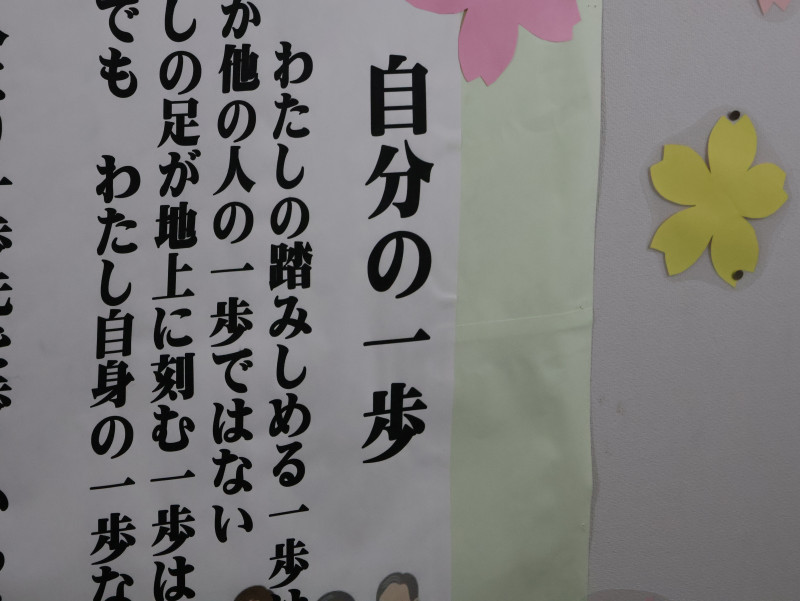 自分の一歩
わたしの踏みしめる一歩は
か他の人の一歩ではない
しの足が地上に刻む一歩は
でも わたし自身の一歩な